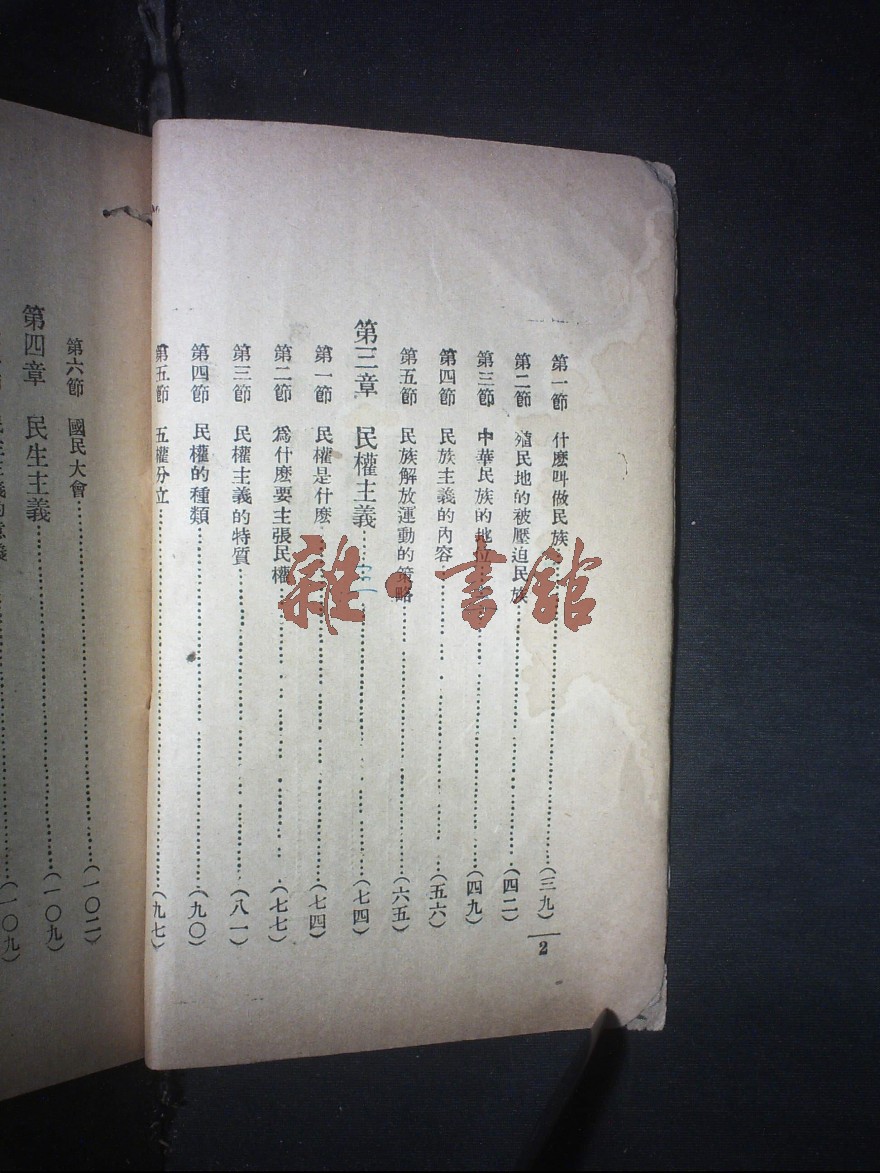 第一節 什麽叫做民族……(三九)
第二節 殖民地的被壓迫民族……(四二)
第三節 中華民族的地位……(四九)
第四節 民族主義的內容……(五六)
第五節 民族解放運動的策略……(六五)
第三章 民權主義……(七四)
第一節 民權是什麽……(七四)
第二節 爲什麽要主張民權……(七七)
第三節 民權主義的特質……(八一)
第四節 民權的種類……(九〇)
第五節 五權分立……(九七)
2
第六節 國民大會……(一〇二)
第四章 民生主義……(一〇九)
民生主義的意義……(一〇九)
雜·書館